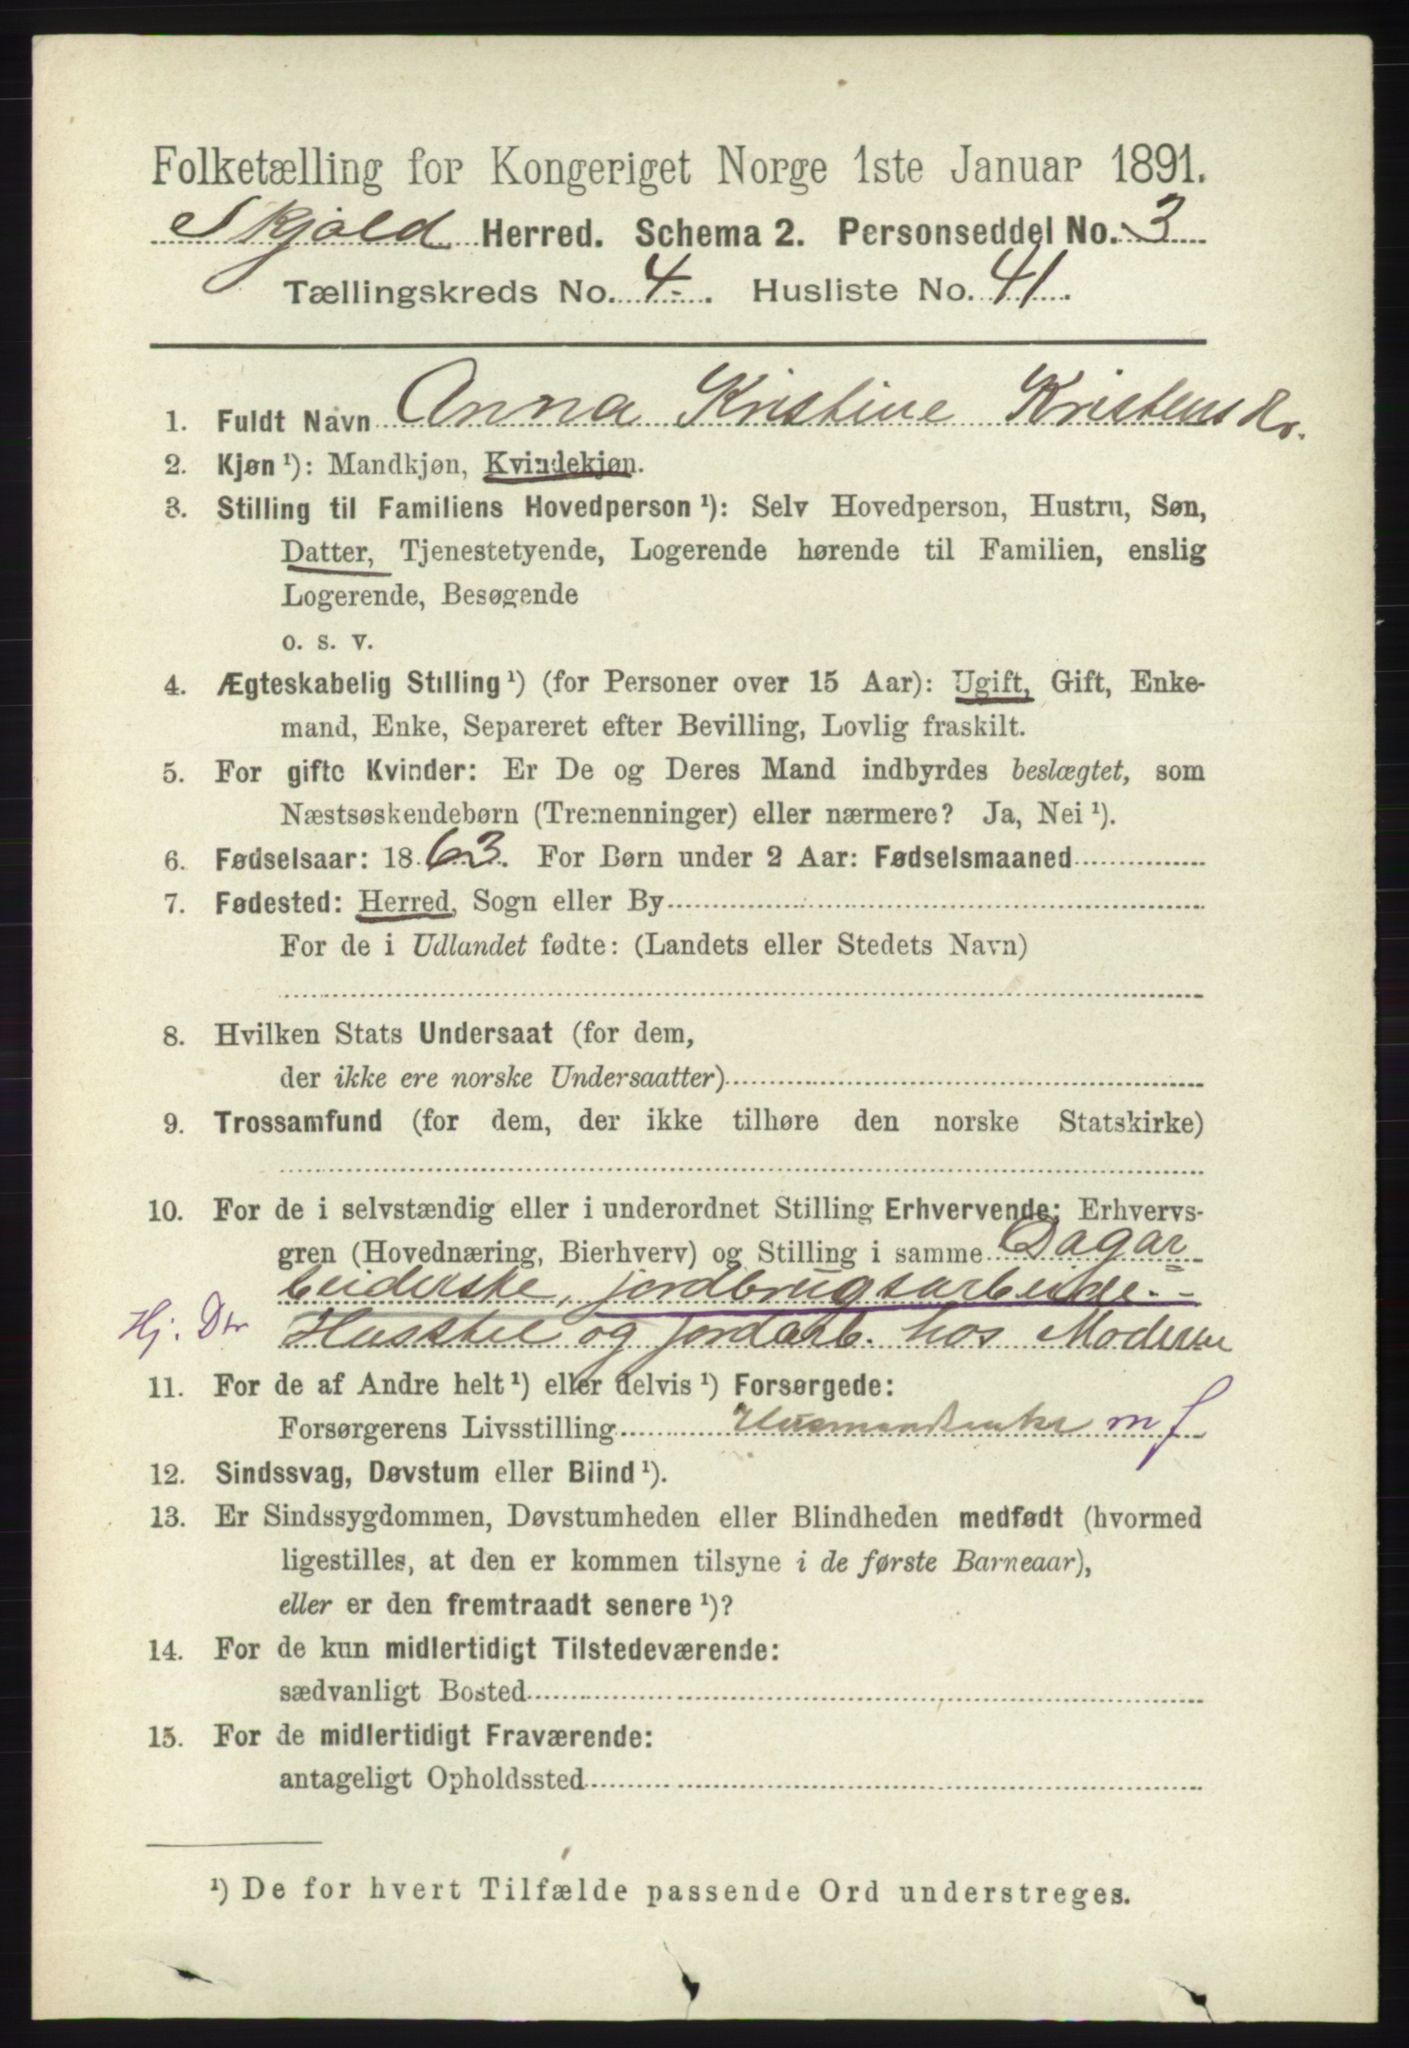 Folketælling for Kongeriget Norge 1ste Januar 1891.
Skjold Herred. Schema 2. Personseddel No. 3
Tællingskreds No. 4. Husliste No. 41.
1. Fuldt Navn Anna Kristine Kristensdr.
2. Kjøn ¹): Mandkjøn, Kvindekjøn.
3. Stilling til Familiens Hovedperson ¹): Selv Hovedperson, Hustru, Søn,
Datter, Tjenestetyende, Logerende hørende til Familien, enslig
Logerende, Besøgende
o. s. v.
4. Ægteskabelig Stilling ¹) (for Personer over 15 Aar): Ugift, Gift, Enke-
mand, Enke, Separeret efter Bevilling, Lovlig fraskilt.
5. For gifte Kvinder: Er De og Deres Mand indbyrdes beslægtet, som
Næstsøskendebørn (Tremenninger) eller nærmere? Ja, Nei ¹).
6. Fødselsaar: 1863. For Børn under 2 Aar: Fødselsmaaned
7. Fødested: Herred, Sogn eller By
For de i Udlandet fødte: (Landets eller Stedets Navn)
8. Hvilken Stats Undersaat (for dem,
der ikke ere norske Undersaatter)
9. Trossamfund (for dem, der ikke tilhøre den norske Statskirke)
10. For de i selvstændig eller i underordnet Stilling Erhvervende: Erhvervs-
gren (Hovednæring, Bierhverv) og Stilling i samme Dagar=
beiderske, jordbrugsarbeide. -
Hj. Dtr Husstel og jordarb. hos Moderen
11. For de af Andre helt ¹) eller delvis ¹) Forsørgede:
Forsørgerens Livsstilling Husmandsenke m f
12. Sindssvag, Døvstum eller Blind ¹).
13. Er Sindssygdommen, Døvstumheden eller Blindheden medfødt (hvormed
ligestilles, at den er kommen tilsyne i de første Barneaar),
eller er den fremtraadt senere ¹)?
14. For de kun midlertidigt Tilstedeværende:
sædvanligt Bosted
15. For de midlertidigt Fraværende:
antageligt Opholdssted
¹) De for hvert Tilfælde passende Ord understreges.